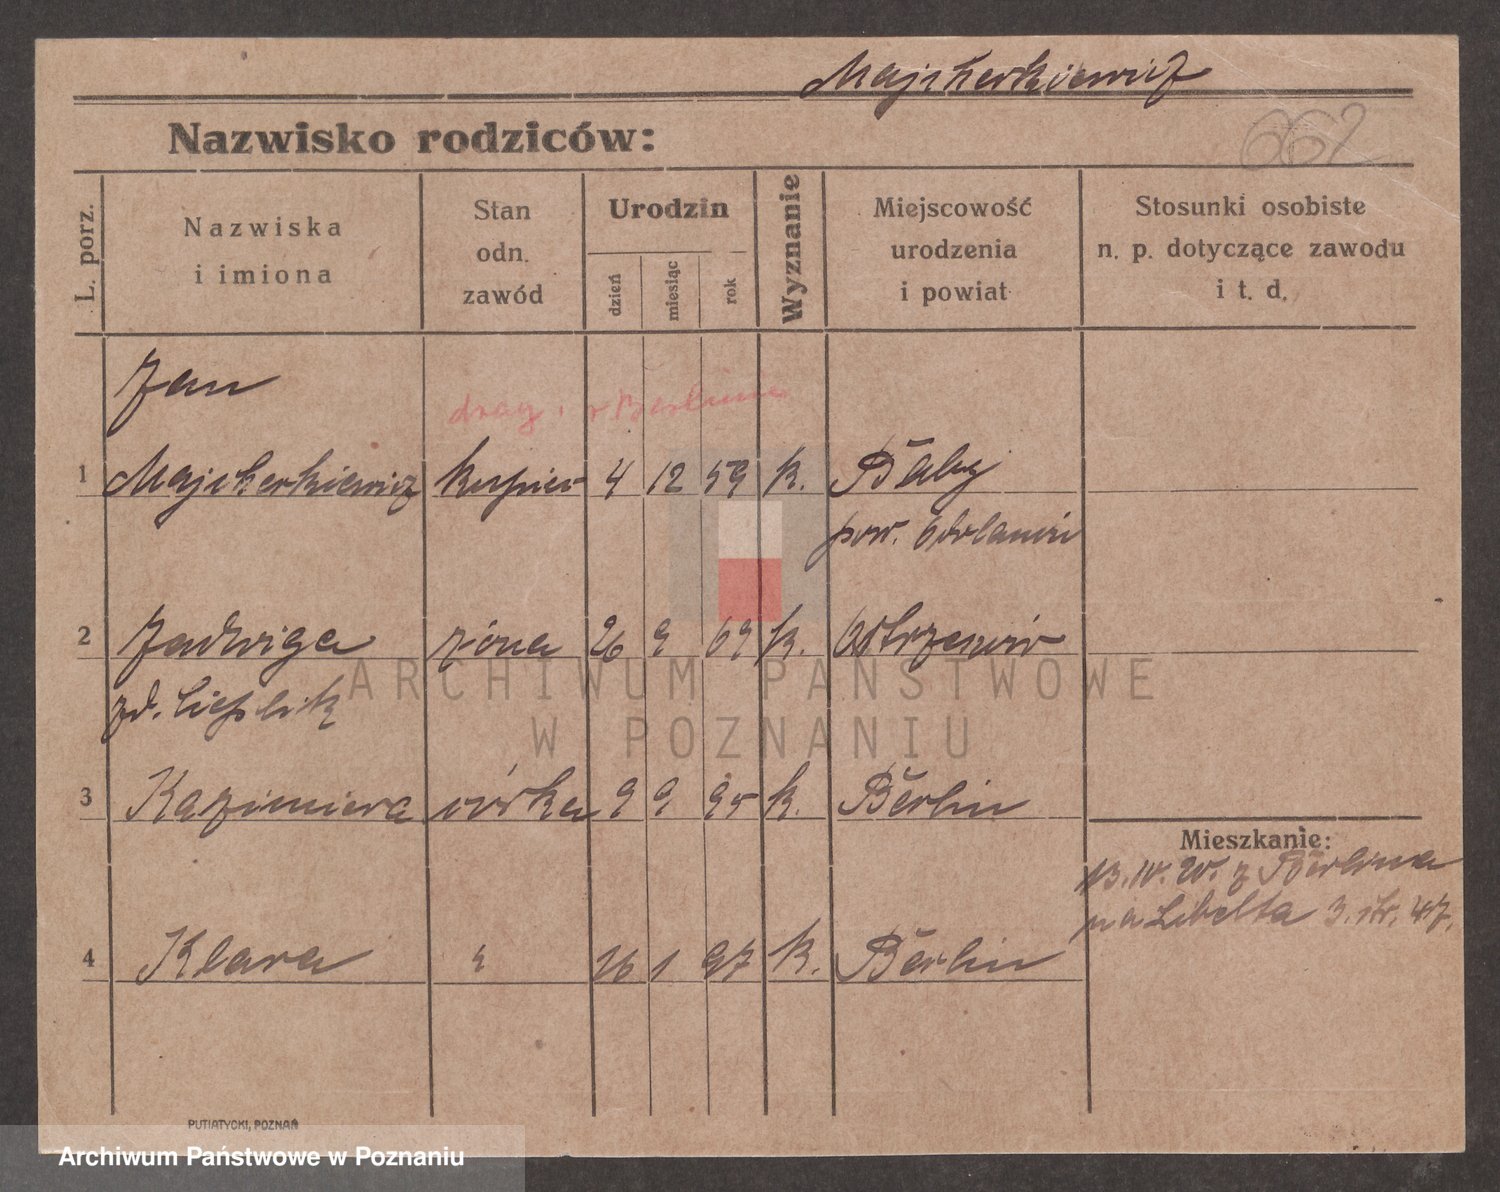 Majcherkiewicz
662
Nazwisko rodziców:
L. porz.
Nazwiska
i imiona
Stan
odn.
zawód
Urodzin
dzień
miesiąc
rok
Wyznanie
Miejscowość
urodzenia
i powiat
Stosunki osobiste
n. p. dotyczące zawodu
i t. d.
Jan
w Berlinie
1 Majcherkiewicz kupiec 4 12 59 k. Baby
pow. Odolanów
2 Jadwiga żona 26 9 69 k. Ostrzeszów
zd. Cieplik
3 Kazimiera córka 9 9 95 k. Berlin
Mieszkanie:
13. IV. 20. z Berlina
na Libelta 3. str. 47.
4 Klara " 26 1 97 k. Berlin
PUTIATYCKI, POZNAŃ
ARCHIWUM PAŃSTWOWE
W POZNANIU
Archiwum Państwowe w Poznaniu